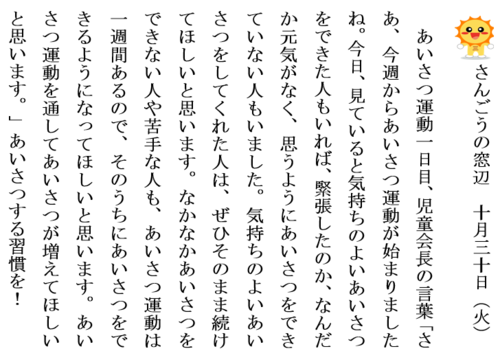 さんごうの窓辺　十月三十日（火）
　あいさつ運動一日目、児童会長の言葉「さ
あ、今週からあいさつ運動が始まりました
ね。今日、見ていると気持ちのよいあいさつ
をできた人もいれば、緊張したのか、なんだ
か元気がなく、思うようにあいさつをでき
ていない人もいました。気持ちのよいあい
さつをしてくれた人は、ぜひそのまま続け
てほしいと思います。なかなかあいさつを
できない人や苦手な人も、あいさつ運動は
一週間あるので、そのうちにあいさつをで
きるようになってほしいと思います。あい
さつ運動を通してあいさつが増えてほしい
と思います。」あいさつする習慣を！